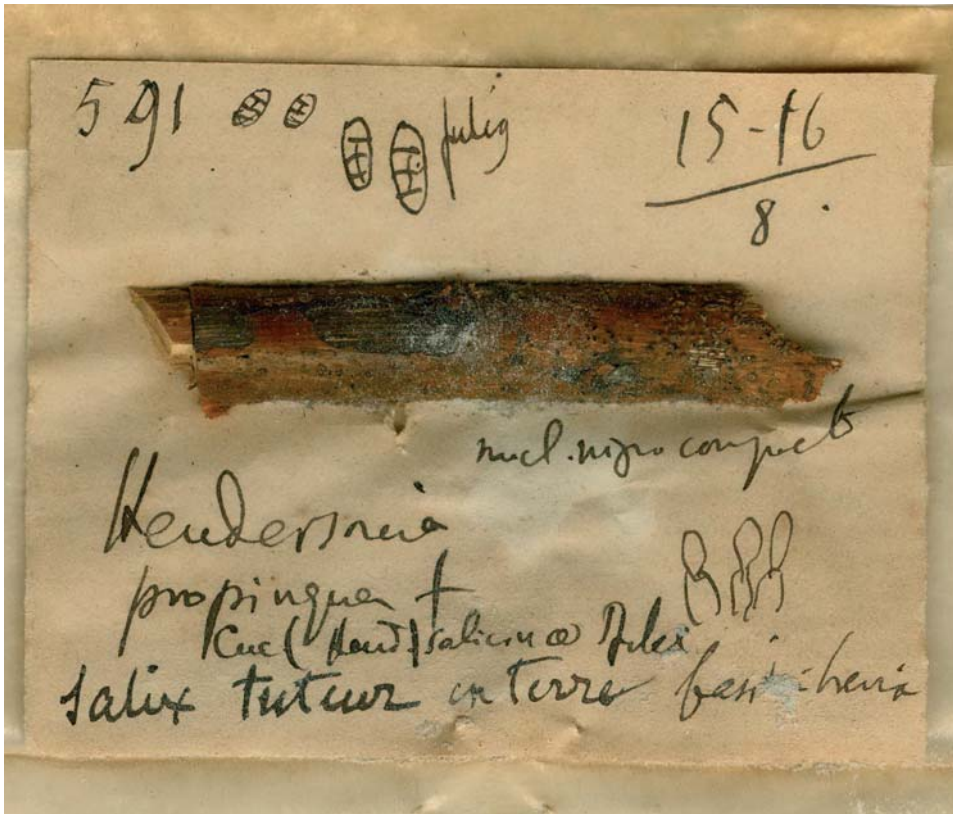 591 fulig 15-16
8.
nucl. nigro compact
Hendersonia
propinqua +
Cuc( Hend) salicina
Salix tuteur en terre